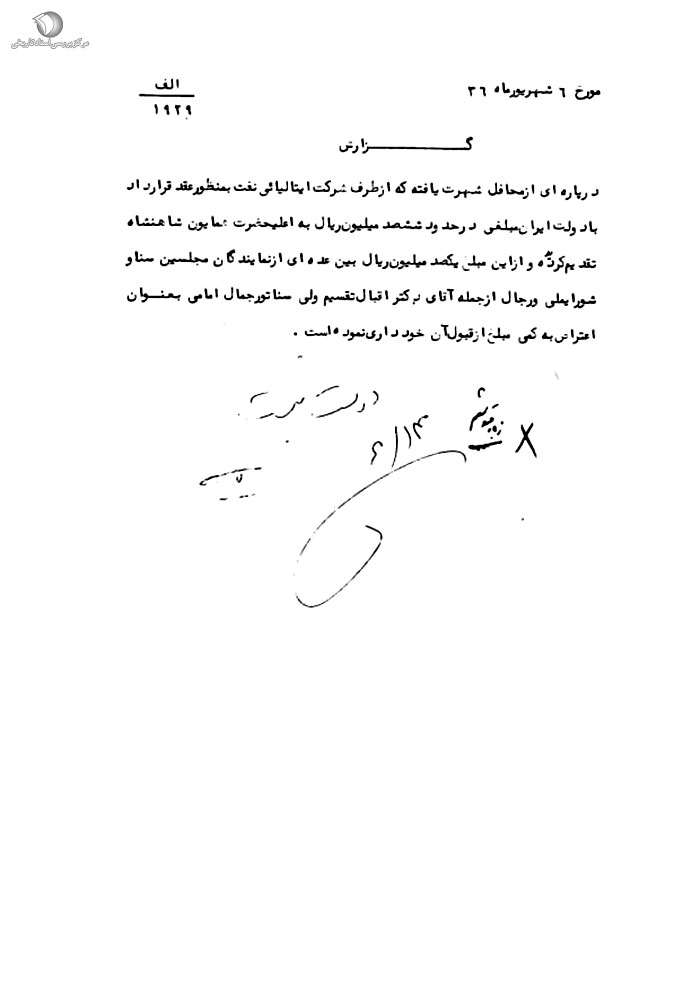 مرکز بررسی اسناد تاریخی
مورخ ۶ شهریورماه ۳۶
الف
۱۹۲۹
گزارش
درپاره ای ازمحافل شهرت یافته که ازطرف شرکت ایتالیائی نفت بمنظورعقد قرارداد
بادولت ایران‌مبلغی درحدود ششصد میلیون‌ریال به اعلیحضرت همایون شاهنشاه
تقدیم‌کرده و ازاین مبلغ یکصد میلیون‌ریال بین عده ای ازنمایندگان مجلسین سنا و
شورایملی ورجال ازجمله آقای دکتر اقبال‌تقسیم ولی سناتورجمال امامی بعنوان
اعتراض به کمی مبلغ ازقبول‌آن خودداری‌نموده‌است .
۶/۱۳